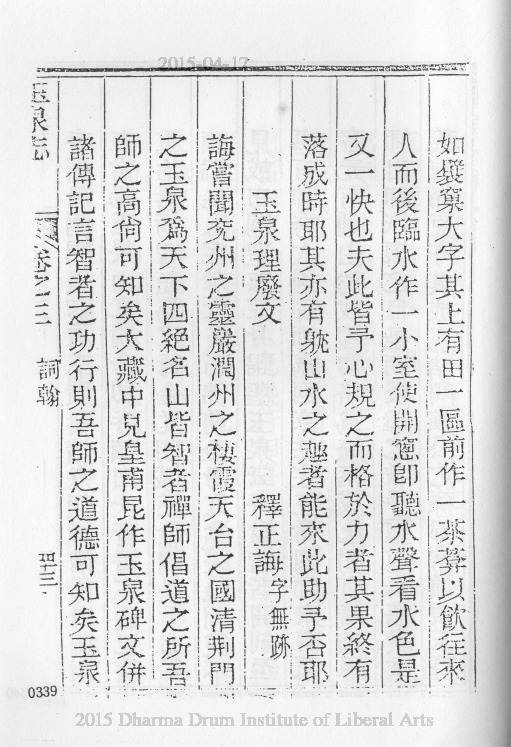 2015-04-17
如擘窠大字其上有田一區前作一茶菴以飲往來
人而後臨水作一小室使開窻卽聽水聲看水色是
又一快也夫此皆予心規之而格於力者其果終有
落成時耶其亦有躭山水之趣者能來此助予否耶
玉泉理廢文 釋正誨字無跡
誨嘗聞兖州之靈嚴潤州之棲霞天台之國清荆門
之玉泉爲天下四絕名山皆智者禪師倡道之所吾
師之高尙可知矣大藏中見皇甫昆作玉泉碑文併
諸傳記言智者之功行則吾師之道德可知矣玉泉
玉泉志 卷之三 詞翰 四十三
0339
2015 Dharma Drum Institute of Liberal Arts